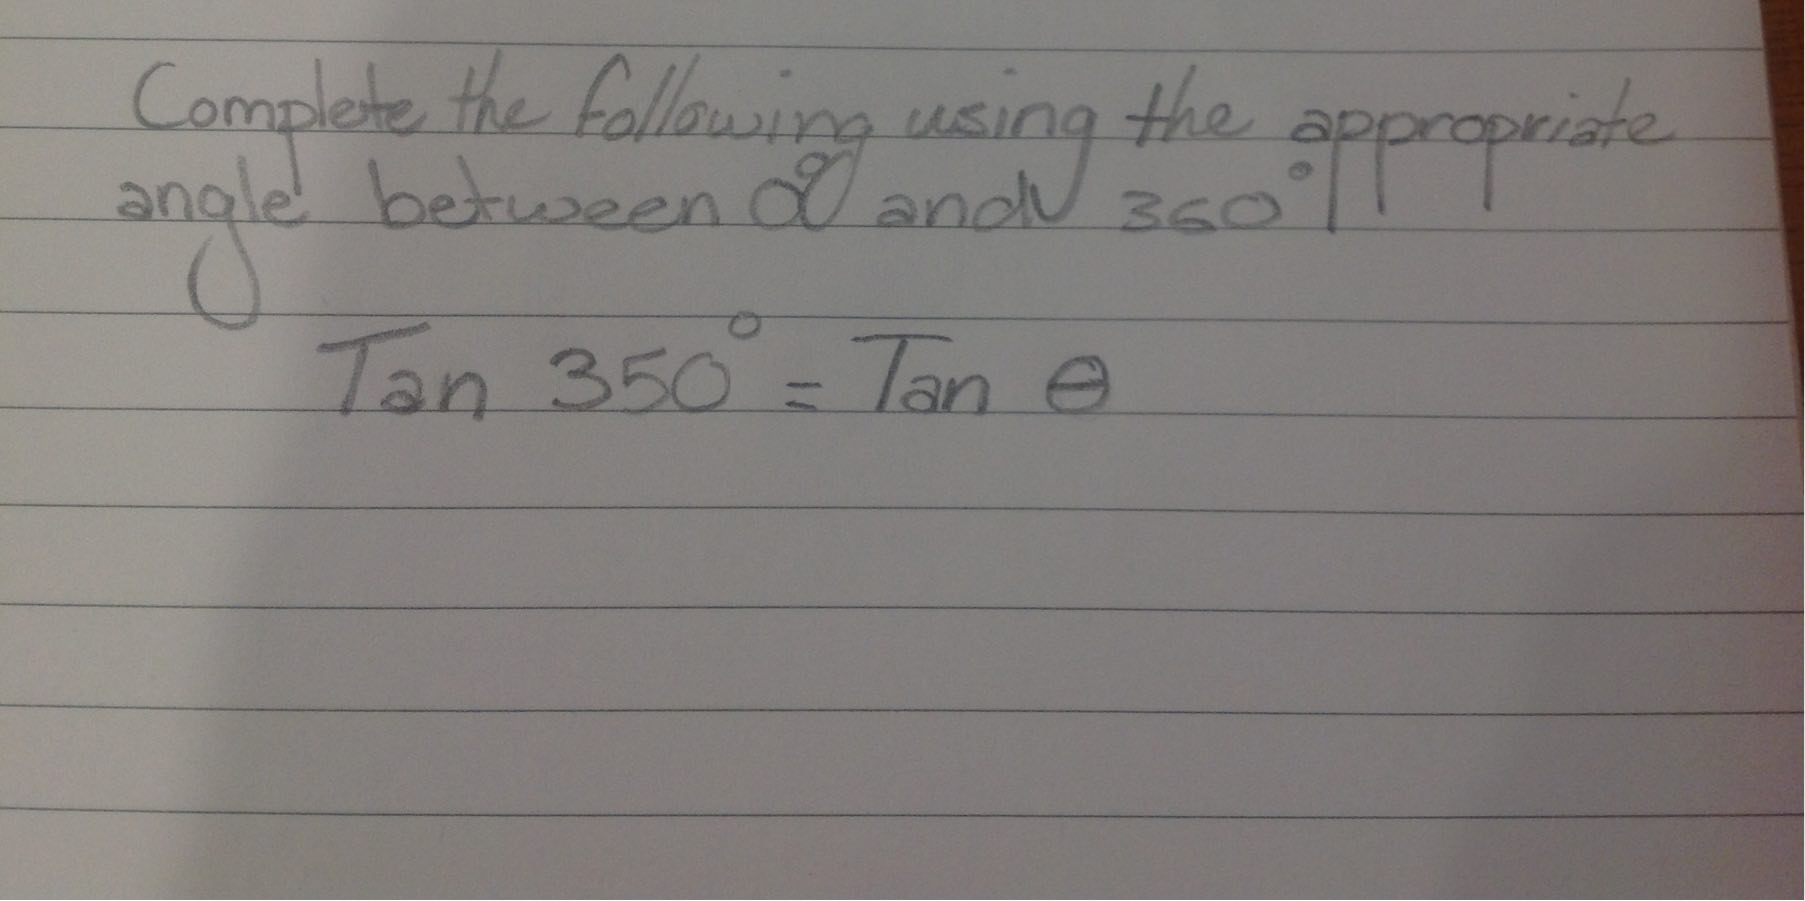 Complete the following using the appropriate
angle between 0° and 360°
Tan 350° = Tan θ